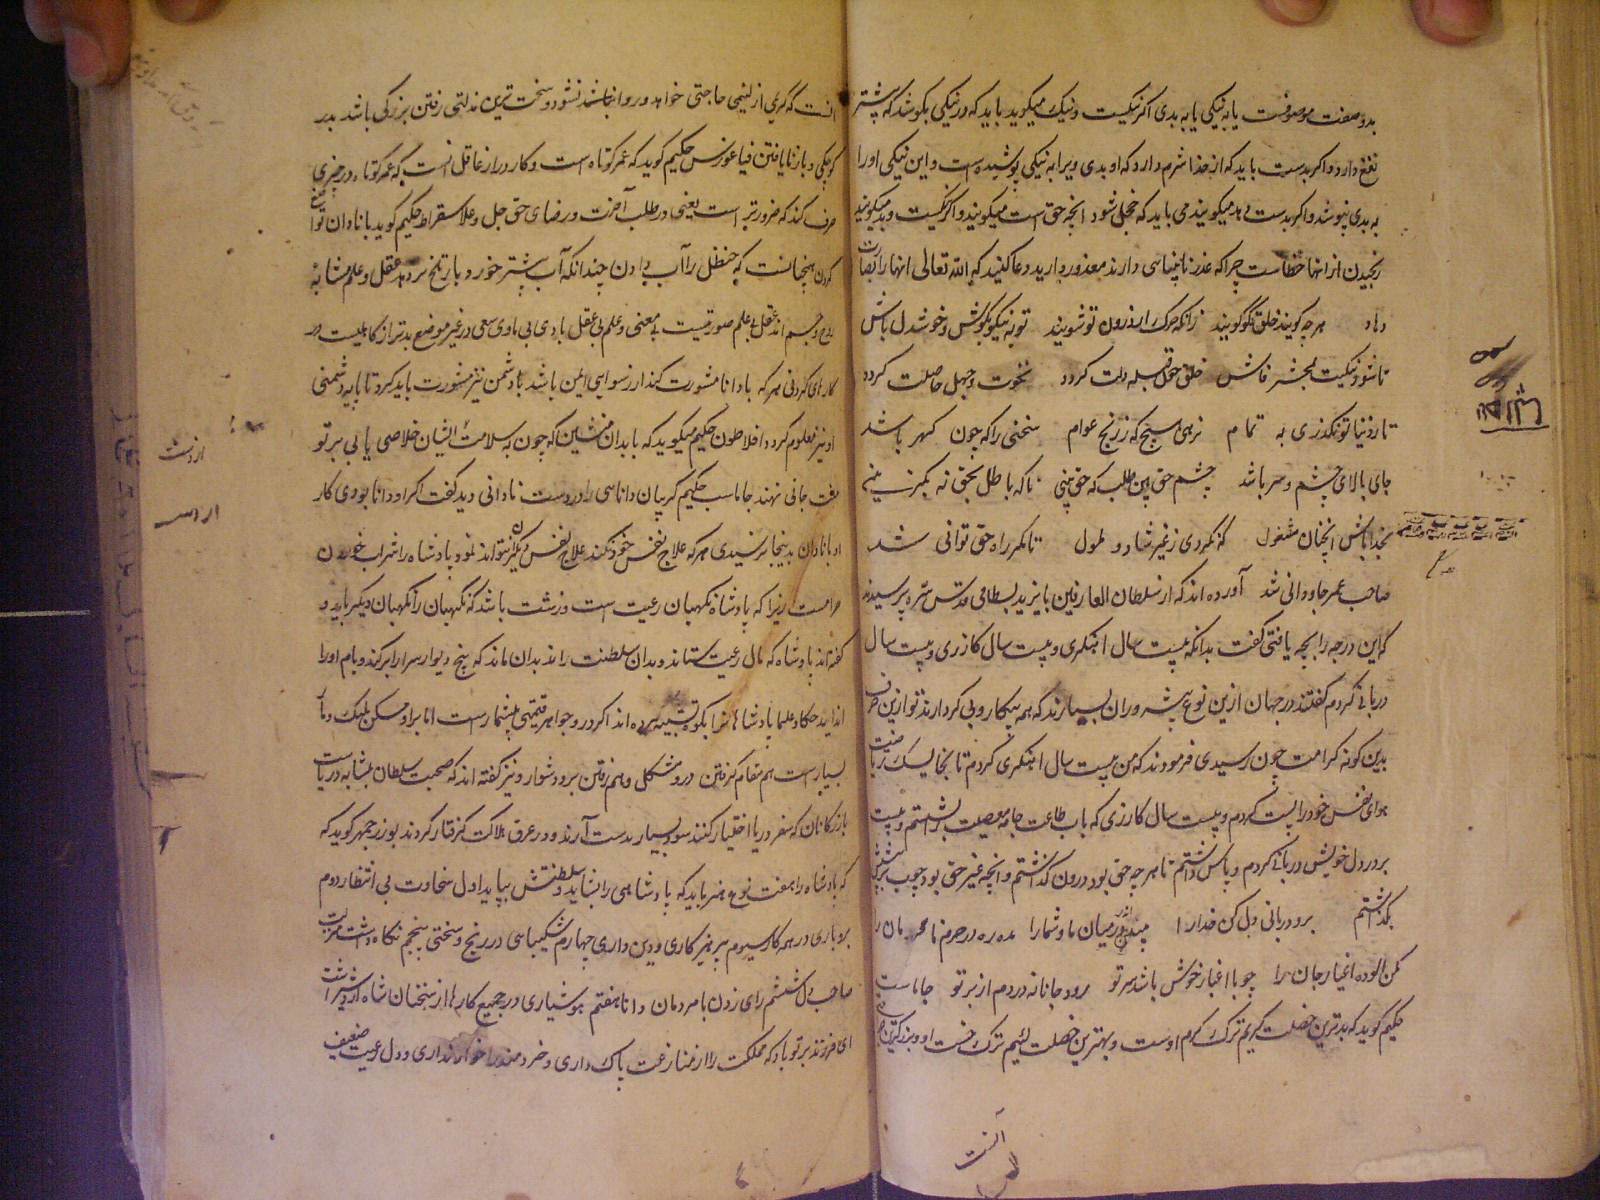 بدو صفت موصوفست یا به نیکی یا به بدی اگر نیکیست و نیک میگوید باید که در نیکی بکوشد که پیشتر
نفع دارد و اگر بدست باید که از خدا شرم دارد که او بدی ویرا به نیکی پوشیده است و این نیکی او را
به بدی نپوشد و اگر بدست بد میگویند می باید که خجل شود انچه حق است میگویند و اگر نیکیست و بد میگویند
رنجیدن از انها خطاست چرا که عذر نابینایی دارند معذور دارید دعا کنید که الله تعالی انها را بصارت
دهاد هر چه گویند خلق گو گویند زانکه چرک اندرون تو شویند تو به نیکو بکوش و خوشدل باش
تا شود نیکیت بحشر فاش خلق چون قبله دلت گردد نخوت و جهل حاصلت گردد
تا ز دنیا تو نگذری به تمام نرهی هیچ که ز رنج عوام سخنی را که چون گهر باشد
جای بالای چشم و سر باشد چشم حق بین طلب که حق بینی تا که باطل بحق نه بگزینی
بخدا باش انچنان مشغول که نگردی ز غیر شاد و ملول تا مگر راه حق توانی شد
صاحب عمر جاودانی شد آورده اند که از سلطان العارفین بایزید بسطامی قدس سره پرسیدند
که این درجه را بچه یافتی گفت بدانکه بیست سال اهنگری و بیست سال گازری و بیست سال
دربانی کردم گفتند در جهان ازین نوع پیشه وران بسیارند که هم پیکار وبی کردارند تو ازین حرف
بدین گونه کرامت چون رسیدی فرمودند که من بیست سال اهنگری کردم تا بخایسک ریاضت
هوای نفس خود را پست کردم و بیست سال گازری که باب طاعت جامه معصیت را بشستم و بیست
بر در دل خویش دربانی کردم و پاس داشتم تا هر چه حق بود درون گذاشتم و انچه غیر حق بود بچوب
بگذاشتم برو دربانی دل کن خدا را میان ما و شما را مده ره در حرم نامحرمان را
مکن آلوده اغیار جان را چو با اغیار خوش باشد سر تو رود جانانه در دم از بر تو جاماسب
حکیم گوید که بدترین خصلت کریم ترک کرم اوست و بهترین خصلت لئیم ترک خست او و بزرگترین
آنست
انست که کریم از لئیمی حاجتی خواهد و روا نباشد نشود و سخت ترین مذلتی رفتن بزرگی باشد بدر
کوچکی و باز نا یافتن فیثاغورس حکیم گوید که عمر کوتاه است و کار دراز عاقل انست که عمر کوتاه در چیزی
صرف کند که ضرورتر است یعنی در طلب آخرت و رضای حق جل و علا سقراط حکیم گوید با نادان تواضع
کردن همچنانست که حنظل را آب دادن چندانکه آب بیشتر خورد بار تلخ تر دهد عقل و علم مشابهٔ
روح و جسم اند عقل بی علم صورتیست بی معنی و علم بی عقل بادی بی باوی سعی در غیر موضع بدتر از کاهلیست در
کارهای کردنی هر که با دانا مشورت کند از رسوایی ایمن باشد با دشمن نیز مشورت باید کرد تا پایه دشمنی
او نیز معلوم گردد افلاطون حکیم میگوید که با بدان منشین که چون به سلامت از ایشان خلاصی یابی بر تو
منت جانی نهند جاماسب حکیم گریبان دانایی را در دست نادانی دید گفت اگر او دانا بودی کار
او با نادان بدینجا نرسیدی هر که علاج نفس خود نکند علاج نفس دیگر نتواند نمود پادشاه را شراب خوردن
حرامست زیرا که پادشاه نگهبان رعیت است و زشت باشد که نگهبان را نگهبان دیگر باید و
گفته اند پادشاه که مال رعیت ستاند و بدان سلطنت راند بدان ماند که بیخ دیوار سرا را بر کند و بام او را
انداید حکما و علما پادشاهان را بکوه تشبیه کرده اند اگر در و جواهر قیمتی بیشمار است اما براو مسکن پلنگ و مار
بسیار است هم مقام گرفتن درو مشکلی و هم رفتن برو دشوار و نیز گفته اند که صحبت سلطان بمشابه دریاست
بازرگانان که سفر دریا اختیار کنند سود بسیار بدست آرند و در غرق هلاکت گرفتار گردند بوزرجمهر گوید که
که پادشاه را هفت نوع هنر باید که پادشاهی را بشاید و سلطنتش بپاید اول سخاوت بی انتظار دوم
بردباری در همه کار سیوم پرهیزکاری و دین داری چهارم شکیبایی در رنج و سختی پنجم نگاه داشت مراتب
صاحب دل ششم رای زدن با مردمان دانا هفتم هوشیاری در جمیع کارها از سخنان شاه اردشیر است
ای فرزند بر تو باد که مملکت را از منازعت پاک داری و خردمند را خوار نداری و دل رعیت ضعیف
اردشت